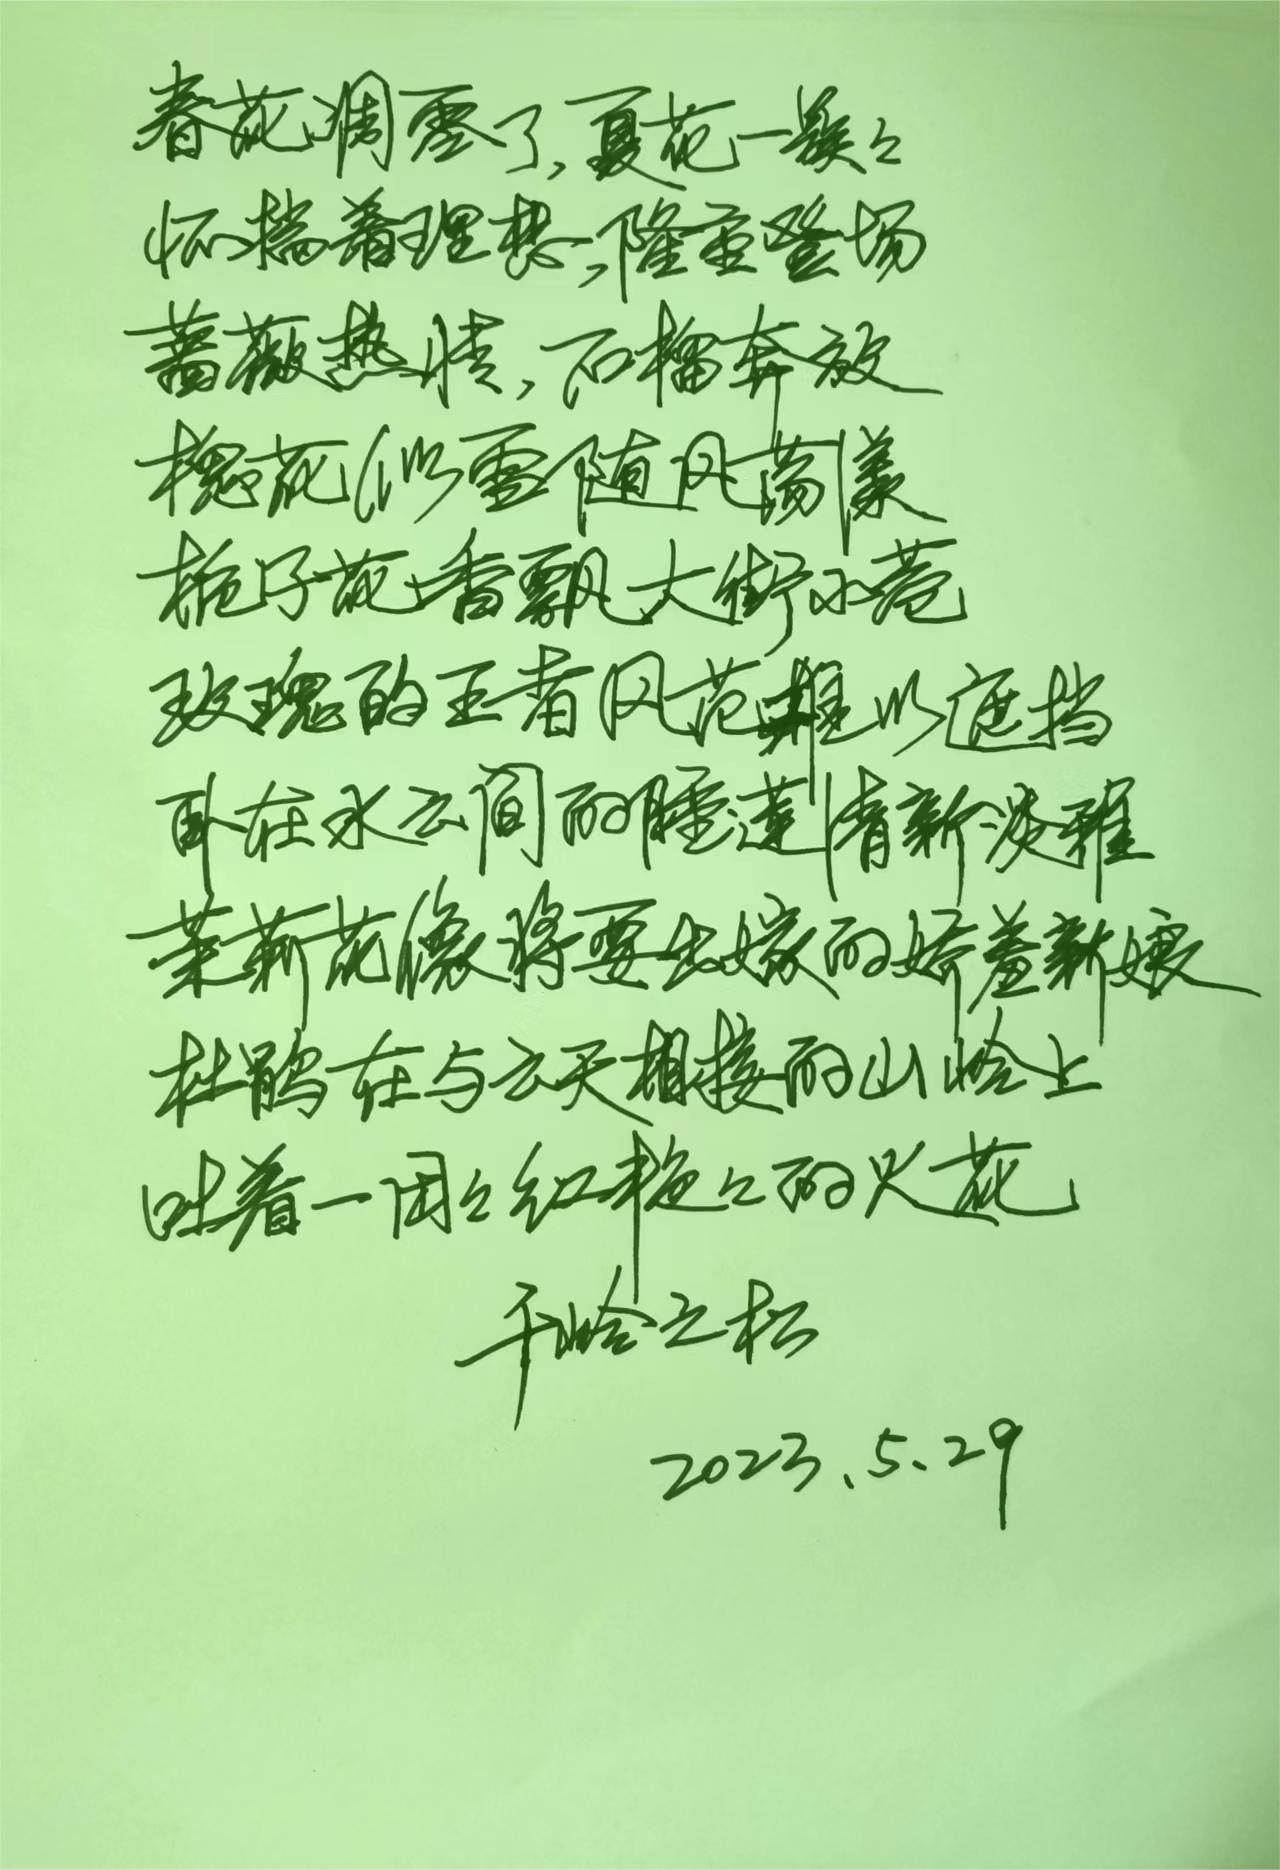 春花凋零了,夏花一簇々
怀揣着理想,隆重登场
蔷薇热情,石榴奔放
槐花似雪随风荡漾
栀子花香飘大街小巷
玫瑰的王者风范难以遮挡
卧在水云间的睡莲清新淡雅
茉莉花像将要出嫁的娇羞新娘
杜鹃在与云天相接的山岭上
吐着一团々红艳々的火花
千岭之松
2023.5.29